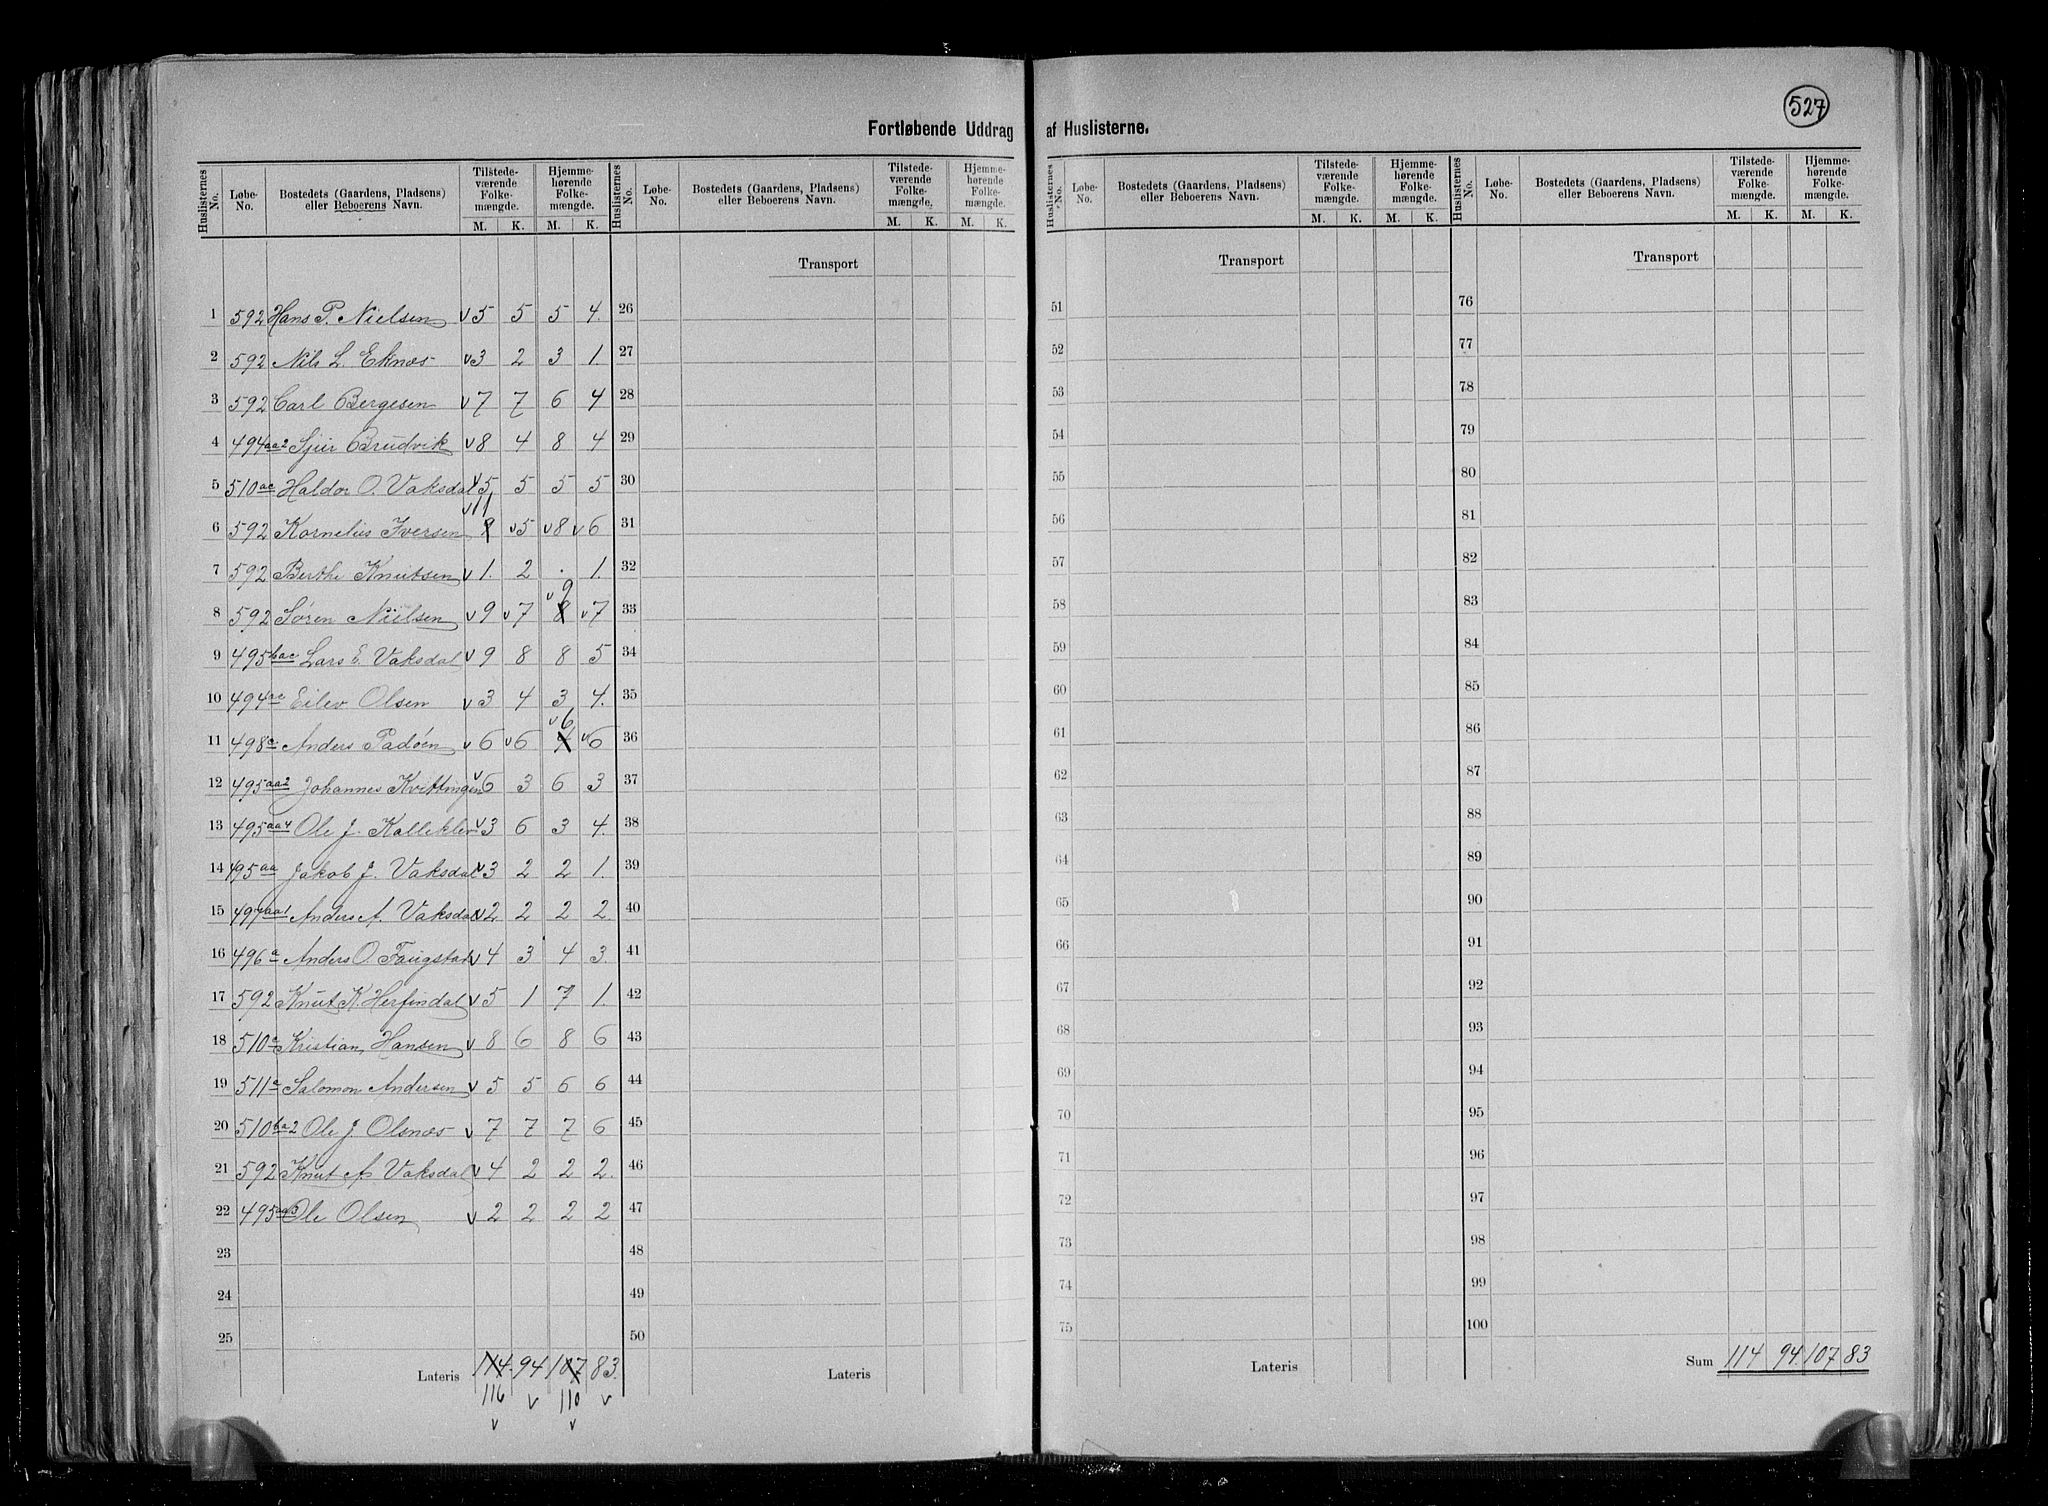 527
Fortløbende Uddrag af Huslisterne.
Huslisternes No. Løbe-No. Bostedets (Gaardens, Pladsens) eller Beboerens Navn. Tilstedeværende Folkemængde. M. K. Hjemmehørende Folkemængde. M. K.
Huslisternes No. Løbe-No. Bostedets (Gaardens, Pladsens) eller Beboerens Navn. Tilstedeværende Folkemængde. M. K. Hjemmehørende Folkemængde. M. K.
Huslisternes No. Løbe-No. Bostedets (Gaardens, Pladsens) eller Beboerens Navn. Tilstedeværende Folkemængde. M. K. Hjemmehørende Folkemængde. M. K.
Huslisternes No. Løbe-No. Bostedets (Gaardens, Pladsens) eller Beboerens Navn. Tilstedeværende Folkemængde. M. K. Hjemmehørende Folkemængde. M. K.
Transport Transport Transport
1 592 Hans P. Nielsen v 5 5 5 4. 26 51 76
2 592 Nils L Eknæs v 3 2 3 1. 27 52 77
3 592 Carl Bergesen v 7 7 6 4 28 53 78
4 494 aa2 Sjur Brudvik v 8 4 8 4 29 54 79
5 510 ac Haldor O. Vaksdal v 5 5 5 5 30 55 80
v 11
6 592 Kornelius Iversen v 5 v 8 v 6 31 56 81
7 592 Berthe Knutsen v 1. 2 . 1. 32 57 82
v 9
8 592 Søren Nielsen v 9 v 7 8 v 7 33 58 83
9 495 bac Lars E. Vaksdal v 9 8 8 5 34 59 84
10 494 ac Eilev Olsen v 3 4 3 4. 35 60 85
v 6
11 498 a Anders Padøen v 6 v 6 4 v 6 36 61 86
12 495 aa2 Johannes Kvittingen v 6 3 6 3 37 62 87
13 495 aa4 Ole J. Kalleklev v 3 6 3 4. 38 63 88
14 495 aa Jakob J. Vaksdal v 3 2 2 1. 39 64 89
15 497 aa1 Anders A. Vaksdal v 2 2 2 2. 40 65 90
16 496 a Anders O. Faugstad v 4 3 4 3. 41 66 91
17 592 Knut K. Herfindal v 5 1 7 1. 42 67 92
18 510 a Kristian Hansen v 8 6 8 6 43 68 93
19 511 a Salomon Andersen v 5 5 6 6 44 69 94
20 510 ba2 Ole J. Olsnæs v 7 7 7 6 45 70 95
21 592 Knut A Vaksdal v 4 2 2 2. 46 71 96
22 495 Ole Olsen v 2 2 2 2 47 72 97
23 48 73 98
24 49 74 99
25 50 75 100
Lateris 114. 94 107 83. Lateris Lateris Sum 114 94. 107 83
116 v 110 v
v v